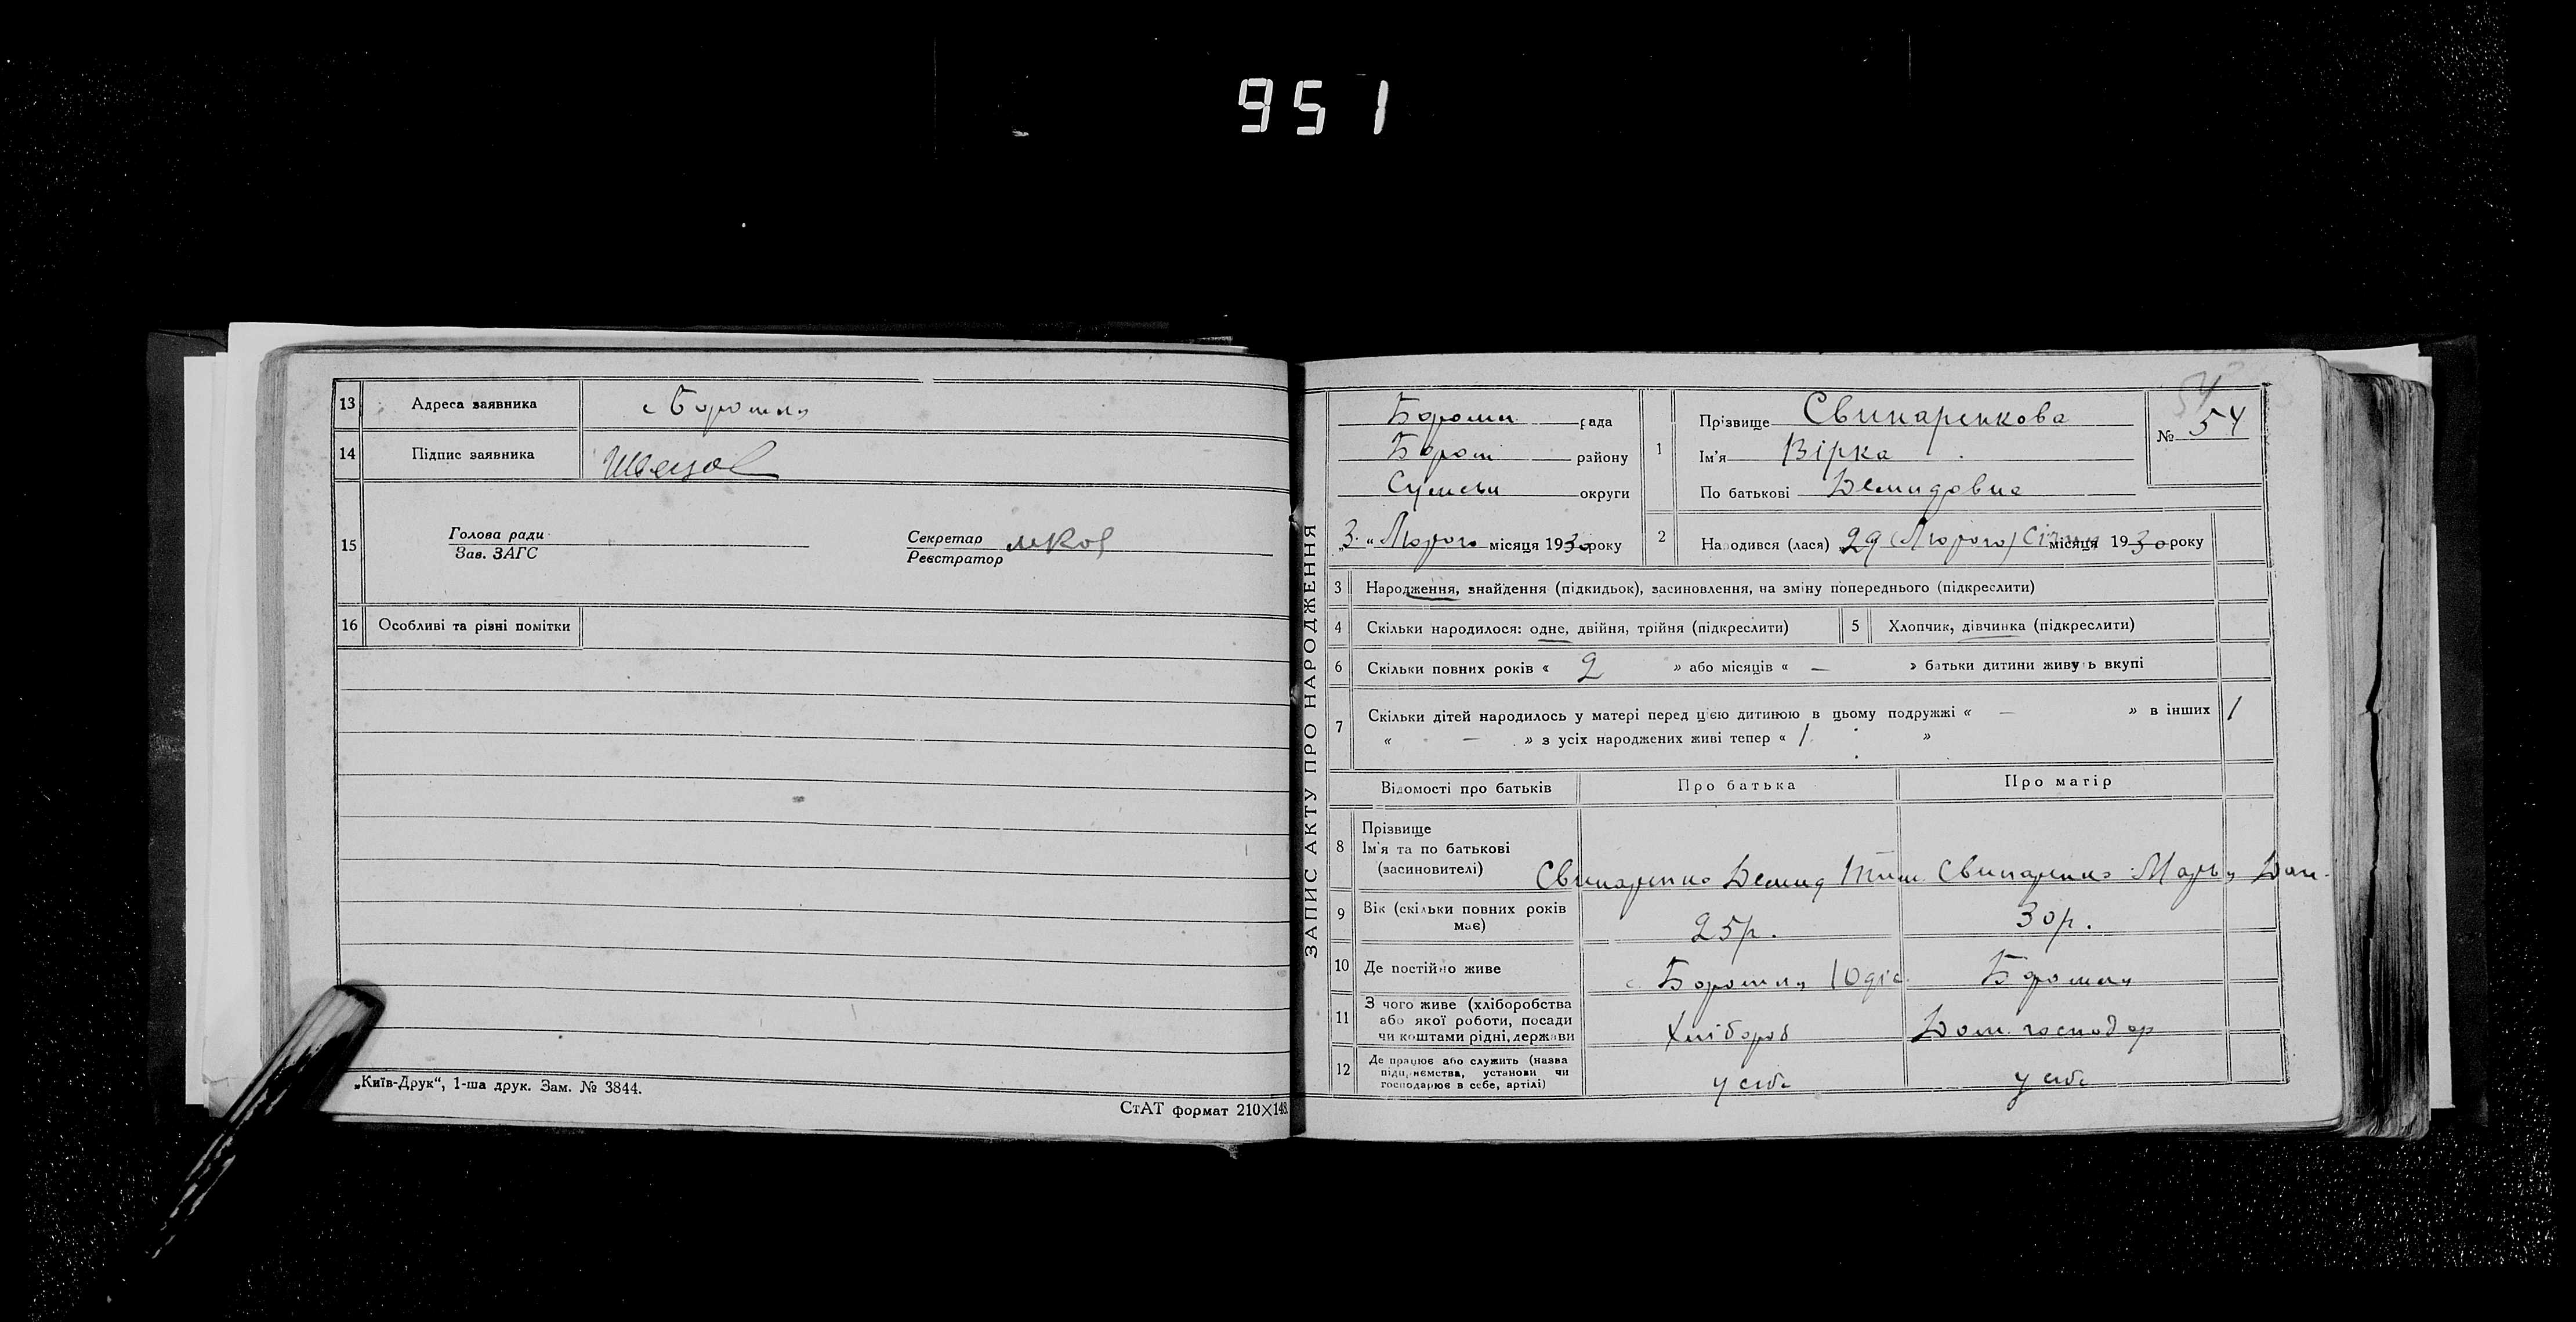 951
13 Адреса заявника с Боромля
14 Підпис заявника Швецов
15 Голова ради
Зав. ЗАГС
Секретар
Реєстратор
16 Особливі та різні помітки
„Київ-Друк“, 1-ша друк. Зам. № 3844.
СтАТ формат 210×148
ЗАПИС АКТУ ПРО НАРОДЖЕННЯ
Боромл рада
Бором району
Сумськ округи
„3“ Лютого місяця 1930 року
№ 54
54
1 Прізвище Свинаренкова
Ім'я Вірка
По батькові Демидовна
2 Народився (лася) 29 (Лютого) Січня місяця 1930 року
3 Народження, знайдення (підкидьок), засиновлення, на зміну попереднього (підкреслити)
4 Скільки народилося: одне, двійня, трійня (підкреслити) 5 Хлопчик, дівчинка (підкреслити)
6 Скільки повних років « 2 » або місяців « — » батьки дитини живуть вкупі
7 Скільки дітей народилось у матері перед цією дитиною в цьому подружжі « — » в інших 1
« — » з усіх народжених живі тепер « 1 »
Відомості про батьків Про батька Про матір
8 Прізвище
Ім'я та по батькові
(засиновителі) Свинаренко Демид Тим. Свинаренко Марья Дан.
9 Вік (скільки повних років
має) 25 р. 30 р.
10 Де постійно живе с. Боромля Боромля
11 З чого живе (хліборобства
або якої роботи, посади
чи коштами рідні, держави Хлібороб Дом. господар
12 Де працює або служить (назва
підприємства, установи чи
господарює в себе, артілі) у себе у себе